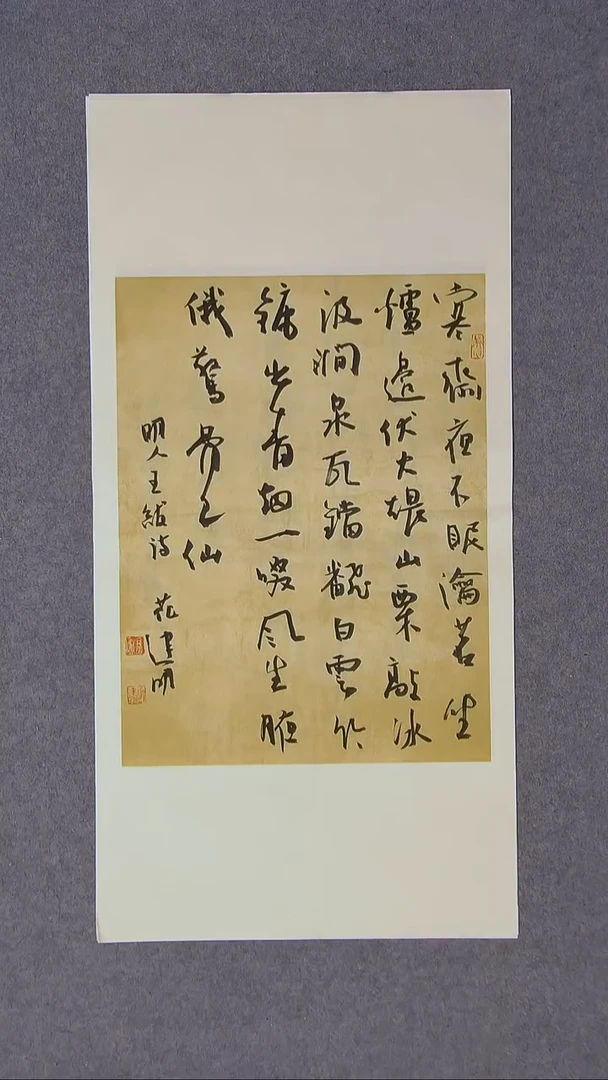 寒齋夜不眠瀹茗坐
爐邊伏火煨山栗敲冰
汲澗泉瓦鐺飜白雲竹
牖出青烟一啜风生腋
俄驚骨已仙
明人王紱詩 范建明